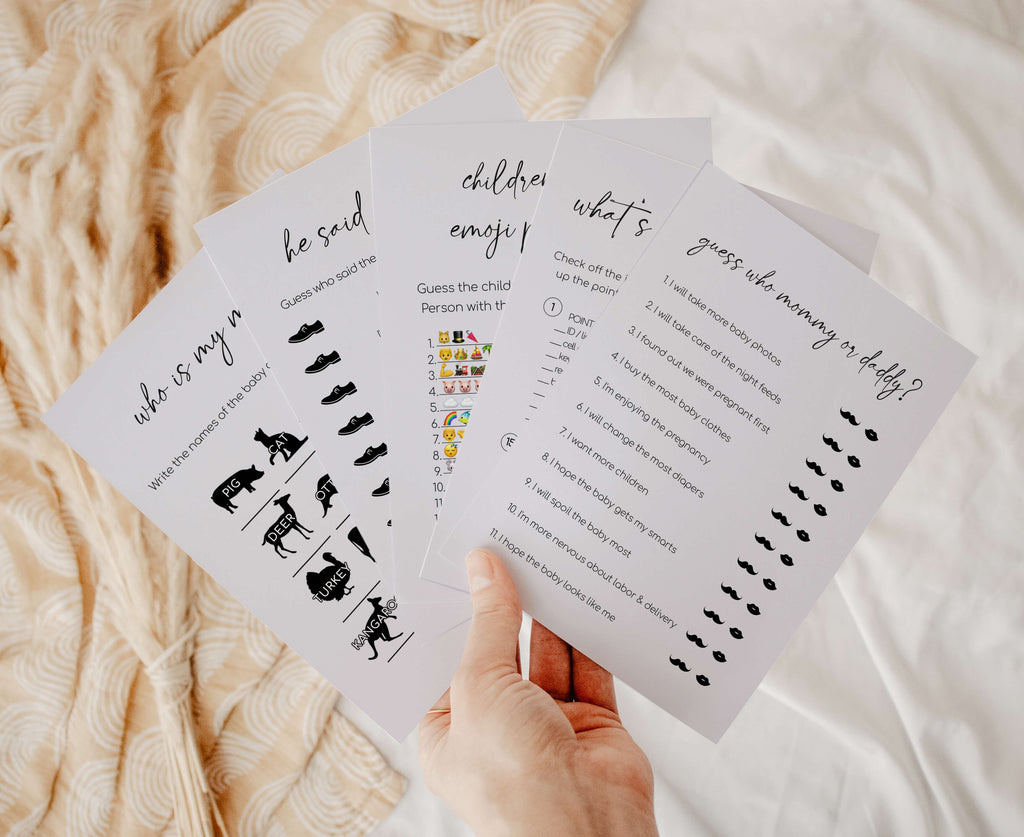 who is my
Write the names of the baby
CAT
PIG
OTT
DEER
TURKEY
KANGAROO
he said
Guess who said the
children
emoji p
Guess the child
Person with th
1.
2.
3.
4.
5.
6.
7.
8.
9.
10.
11.
what's
Check off the
up the point
1
POINT
ID / li
cell
key
re
15
guess who mommy or daddy?
1. I will take more baby photos
2. I will take care of the night feeds
3. I found out we were pregnant first
4. I buy the most baby clothes
5. I'm enjoying the pregnancy
6. I will change the most diapers
7. I want more children
8. I hope the baby gets my smarts
9. I will spoil the baby most
10. I'm more nervous about labor & delivery
11. I hope the baby looks like me